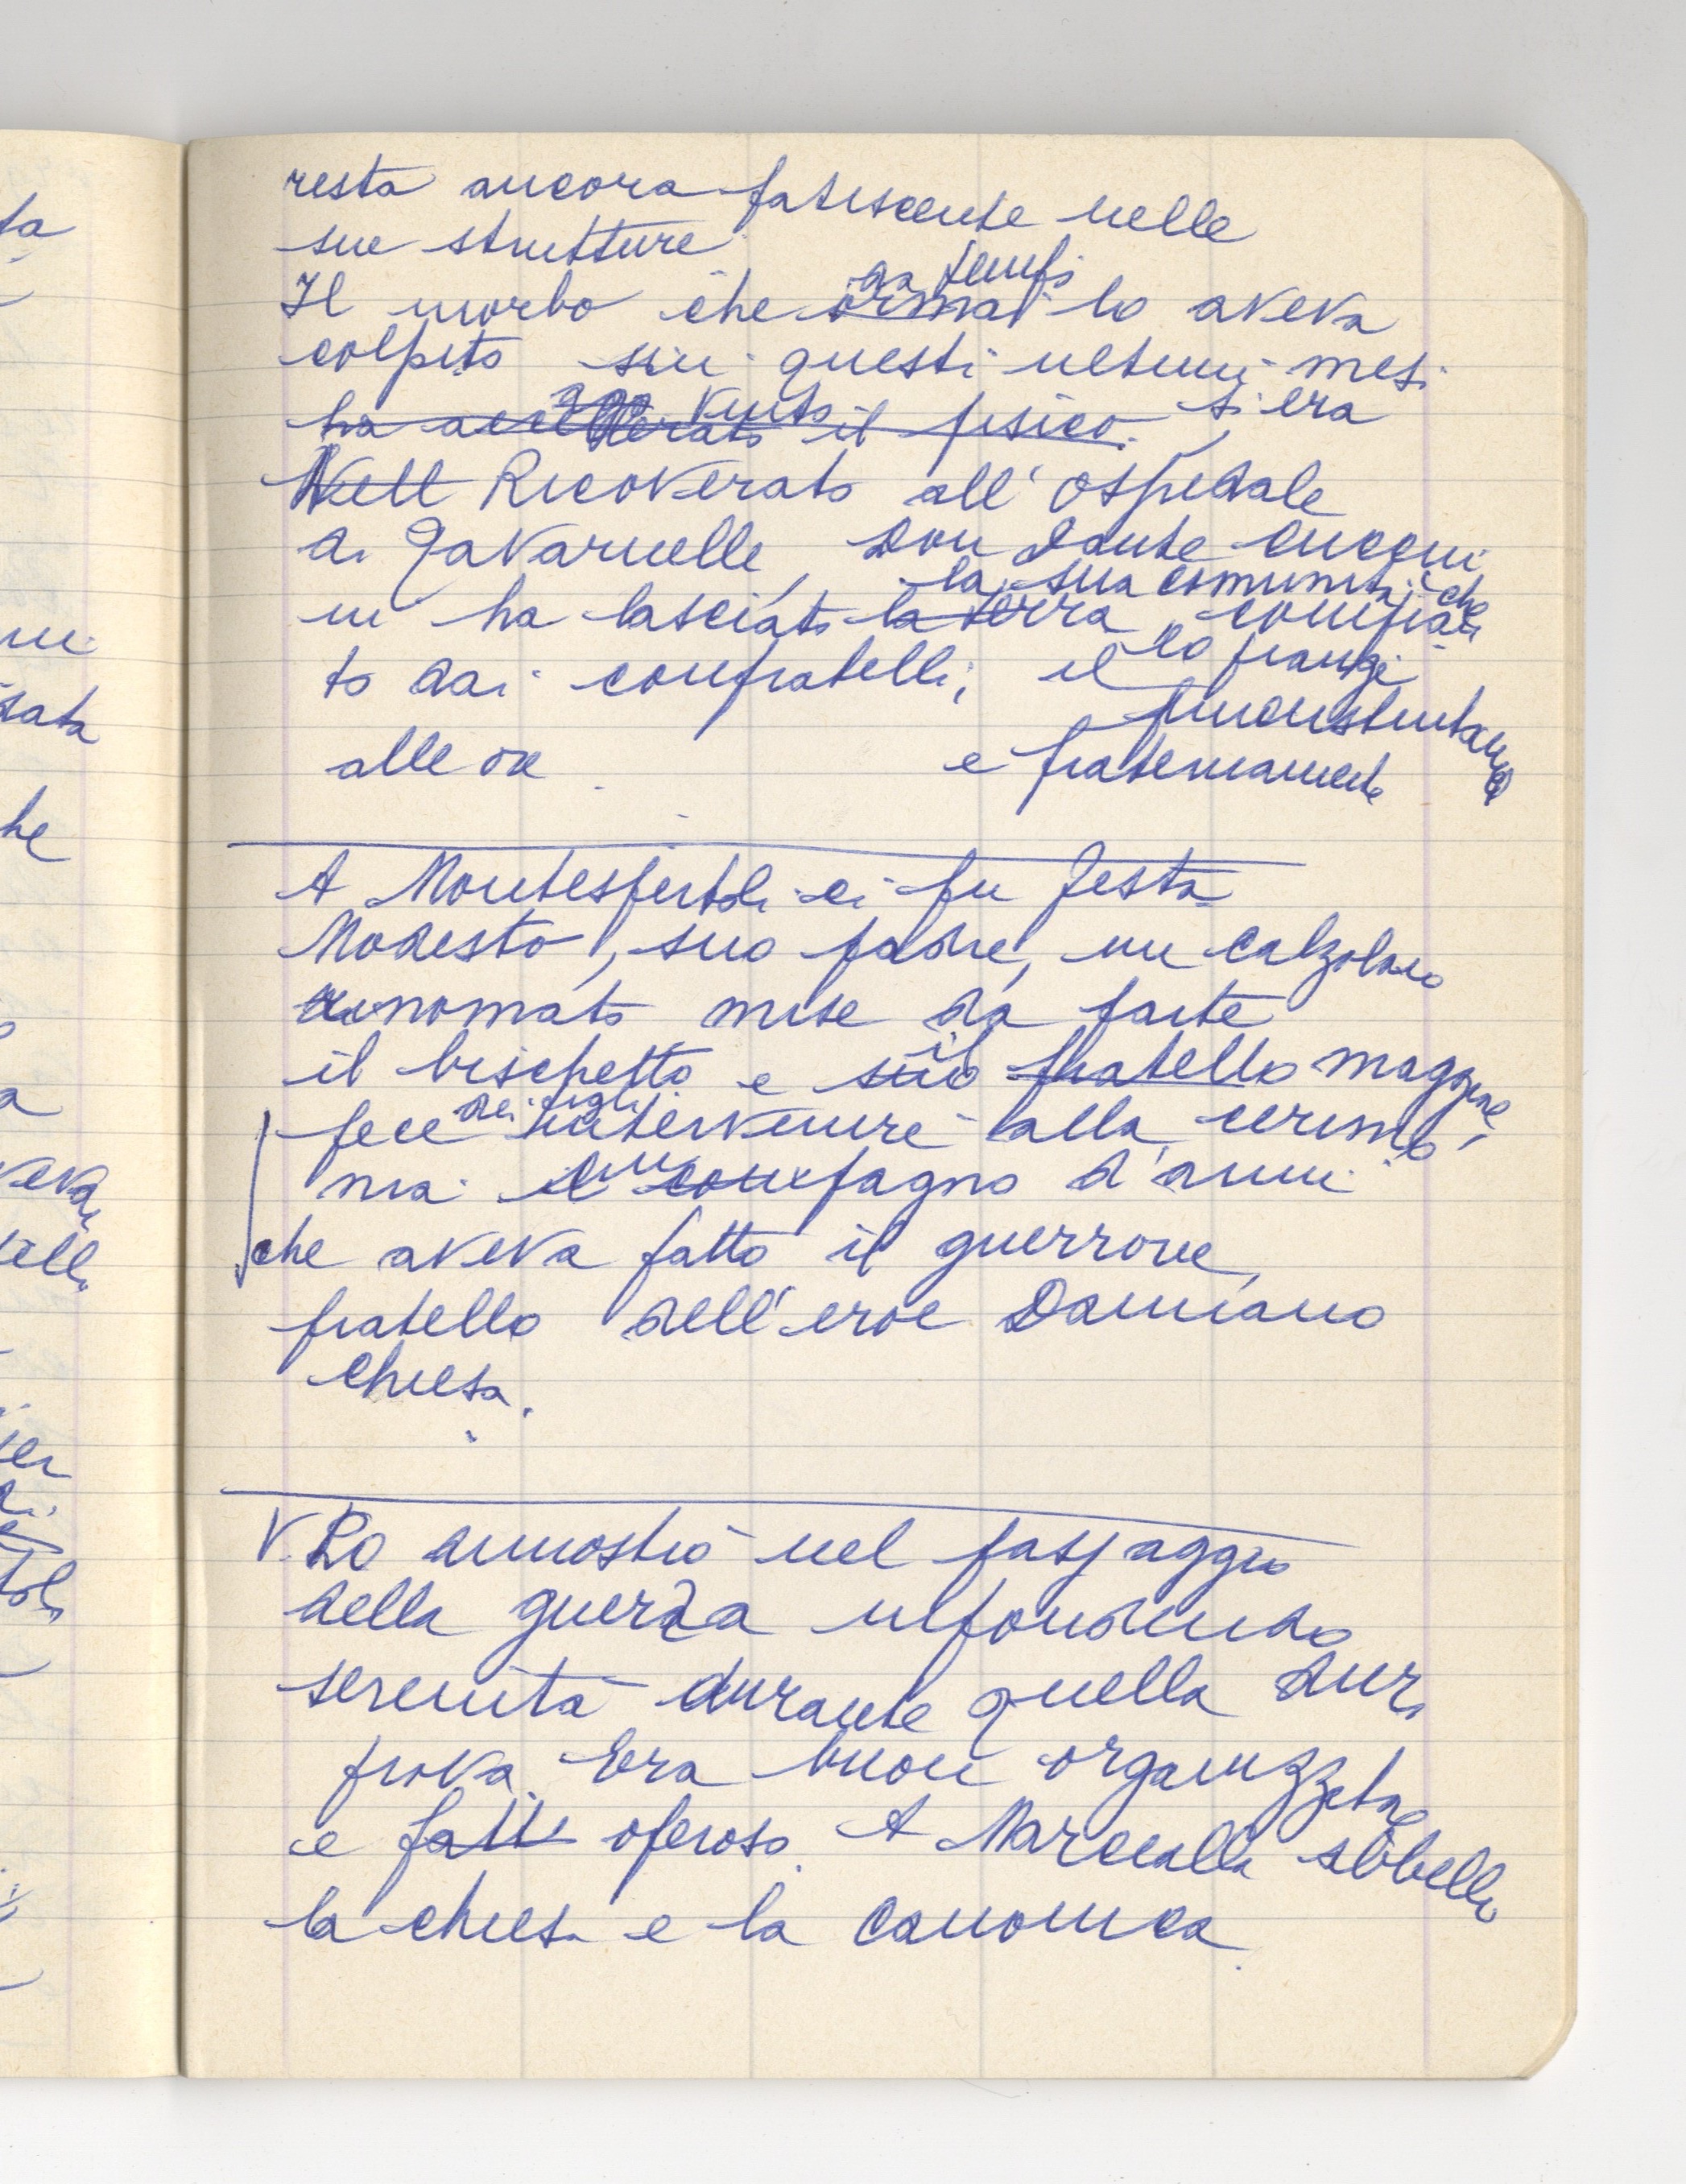 resta ancora fatiscente nelle
sue strutture.
da tempi
Il morbo che ormai lo aveva
colpito sin questi ultimi mesi
vinto si era
ha accellerato il fisico.
Nell Ricoverato all'ospedale
di Tavarnelle, Don Dante
la sua comunità che
in ha lasciato la terra compia
to dai confratelli, il lo piange
alle ore e fraternamente
A Montespertoli ci fu festa
Modesto, suo padre, un calzolaio
rinomato mise da parte
il
il bischetto e suo fratello maggiore
dei figli
fece intervenire alla cerimo
un
nia il compagno d'armi
che aveva fatto il guerrone,
fratello dell'eroe Damiano
Chiesa.
V. Lo dimostrò nel passaggio
della guerra infondendo
serenità durante quella dura
prova. Era buon organizzatore
e operoso. A Marcialla abbellì
la chiesa e la canonica.